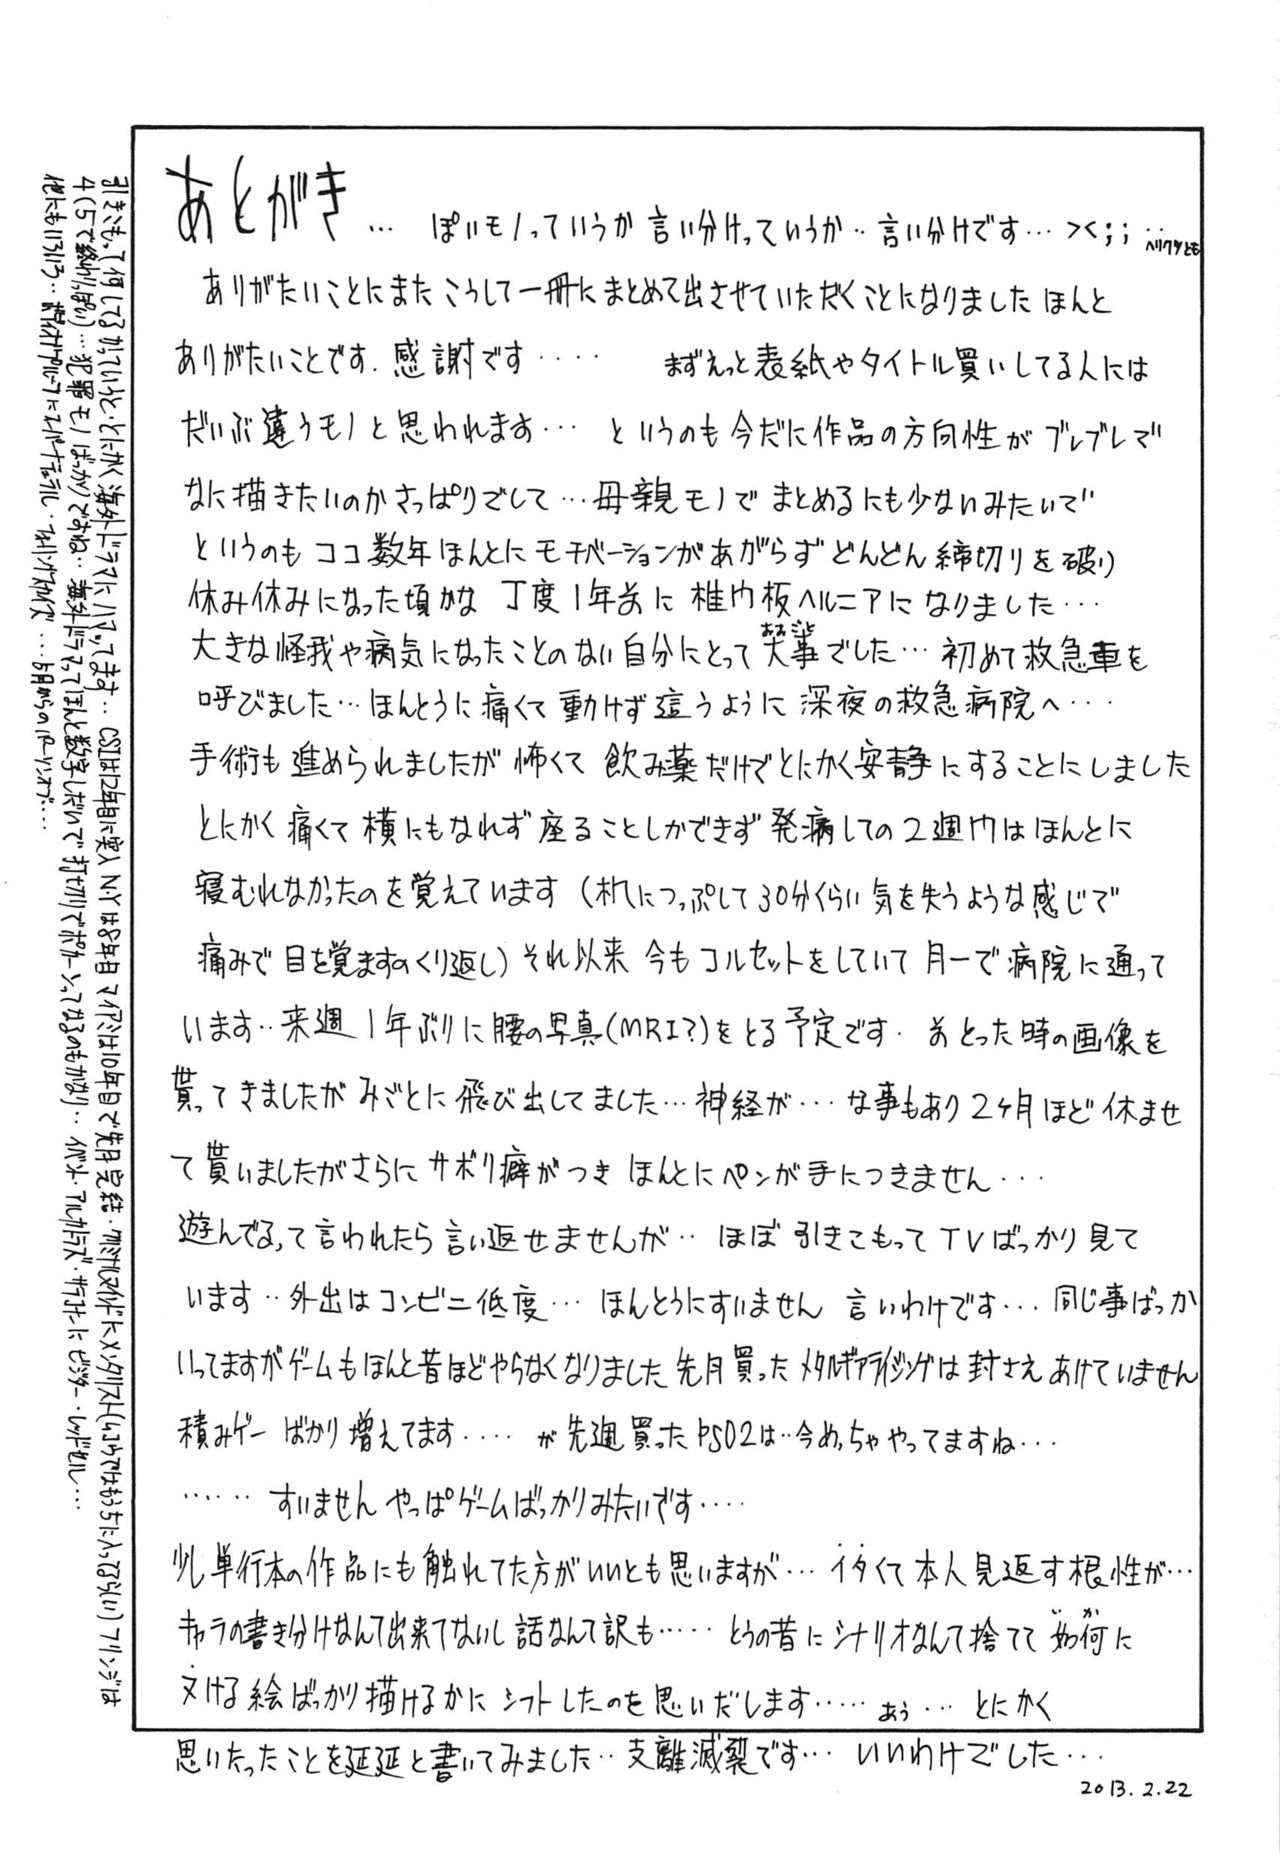 あとがき… ぽいモノっていうか 言い分けっていうか‥言い分けです… ><;; ‥
ヘリクツとも
ありがたいことにまた こうして一冊に まとめて出させていただくことになりました ほんと
ありがたいことです. 感謝です‥‥ まずえっと表紙やタイトル買いしてる人には
だいぶ違うモノと思われます… というのも今だに作品の方向性が ブレブレで
なに描きたいのかさっぱりでして…母親モノで まとめるにも少ないみたいで
というのも ココ数年ほんとに モチベーションがあがらず どんどん締切りを破り
休み休みになった頃かな 丁度1年前に 椎間板ヘルニアになりました…
大きな怪我や病気になったことのない自分にとって大事でした… 初めて救急車を
おおごと
呼びました…ほんとうに痛くて動けず 這うように 深夜の救急病院へ…
手術も進められましたが 怖くて 飲み薬だけでとにかく安静にすることにしました
とにかく痛くて横にもなれず座ることしかできず発病しての2週間はほんとに
寝むれなかったのを覚えています (机につっぷして30分くらい気を失うような感じで
痛みで目を覚ますのくり返し) それ以来 今もコルセットをしていて 月一で病院に通って
います‥来週1年ぶりに腰の写真(MRI?)をとる予定です. 前とった時の画像を
貰ってきましたが みごとに飛び出してました…神経が…な事もあり2ヶ月ほど休ませ
て貰いましたがさらに サボリ癖がつき ほんとにペンが手につきません…
遊んでるって言われたら言い返せませんが‥ ほぼ引きこもってTVばっかり見て
います‥外出はコンビニ低度… ほんとうにすいません 言いわけです…同じ事ばっか
いってますがゲームもほんと昔ほどやらなくなりました先月買ったメタルギアライジングは封さえあけていません
積みゲー ばかり増えてます‥‥ が先週買ったPSO2は‥今めっちゃやってますね…
‥‥‥ すいません やっぱゲームばっかりみたいです‥‥
少し単行本の作品にも触れてた方がいいとも思いますが… イタくて本人見返す根性が…
キャラの書き分けなんて出来てないし話なんて訳も‥‥‥ とうの昔にシナリオなんて捨てて 如何に
いか
ヌける絵ばっかり描けるかに シフトしたのを思いだします‥‥‥ あぅ… とにかく
思いたったことを延延と書いてみました‥支離滅裂です… いいわけでした…
2013.2.22
引きこもって何してるかっていうと・とにかく海外ドラマにハマってます‥ CSIは12年目に突入 N.Yは8年目 マイアミは10年目で先月完結・クリミナルマインドに メンタリスト(むこうではもう5に入ってるらしい)フリンジは
4(5で終わりっぽい)…犯罪モノばっかりですね‥ 海外ドラマってほんと数字しだいで 打ち切りでポカーンってなるのもかなり‥ イベント・アルカトラズ・テラノーバに ビジター・レッドセル…
他にもいろいろ‥ ヴァンパイアに スーパーナチュラル・フォーリングスカイズ… 5月からのパーソンオブ…